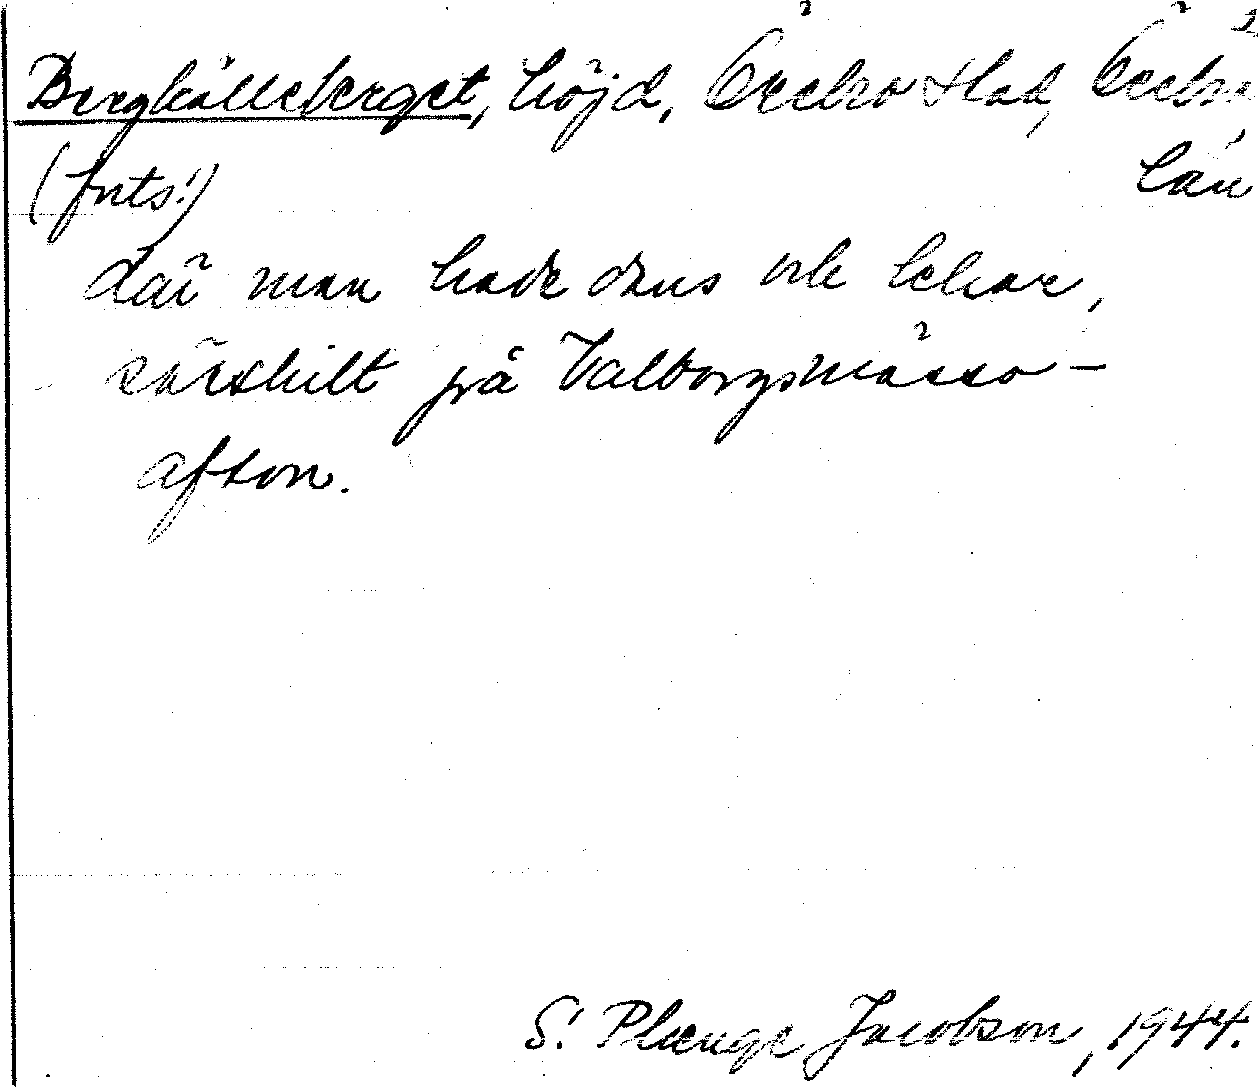 Bergkälleberget, höjd, Örebro stad, Örebro
(forts.) län
där man hade dans och lekar,
särskilt på Valborgsmässo-
afton.
S. Plænge Jacobson, 1944.